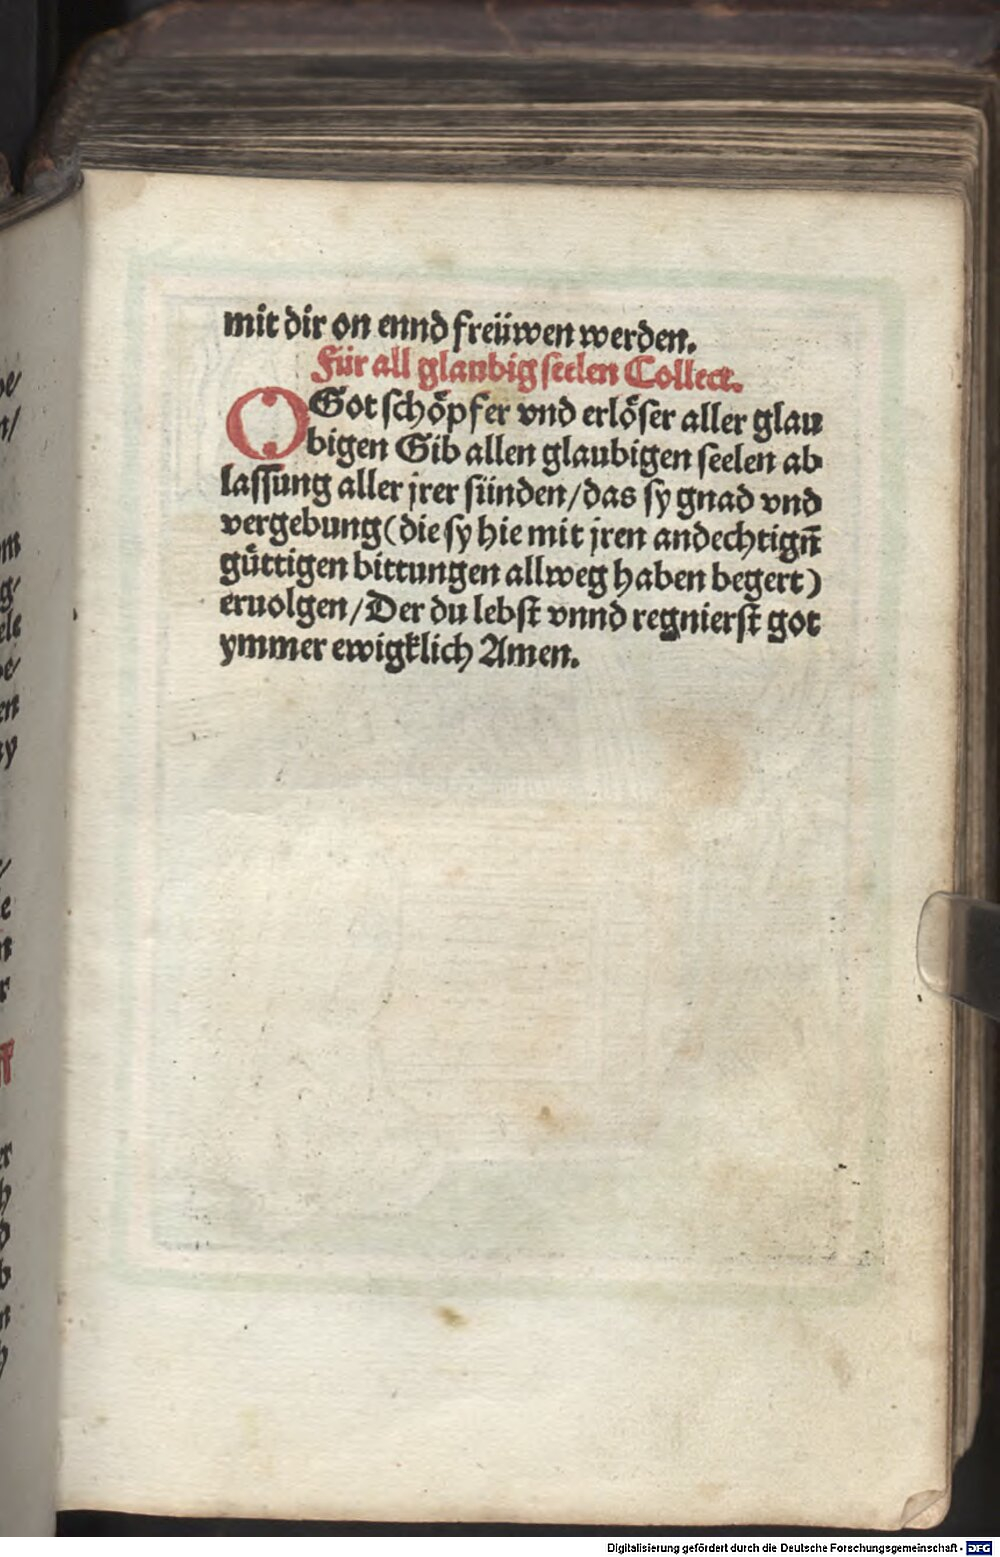 mit dir on ennd freüwen werden.
Für all glaubig seelen Collect.
O Got schöpfer vnd erlöser aller glau
bigen Gib allen glaubigen seelen ab
lassung aller jrer sünden/das sy gnad vnd
vergebung(die sy hie mit jren andechtign̄
güttigen bittungen allweg haben begert)
eruolgen/Der du lebst vnnd regnierst got
ymmer ewigklich Amen.
Digitalisierung gefördert durch die Deutsche Forschungsgemeinschaft - DFG